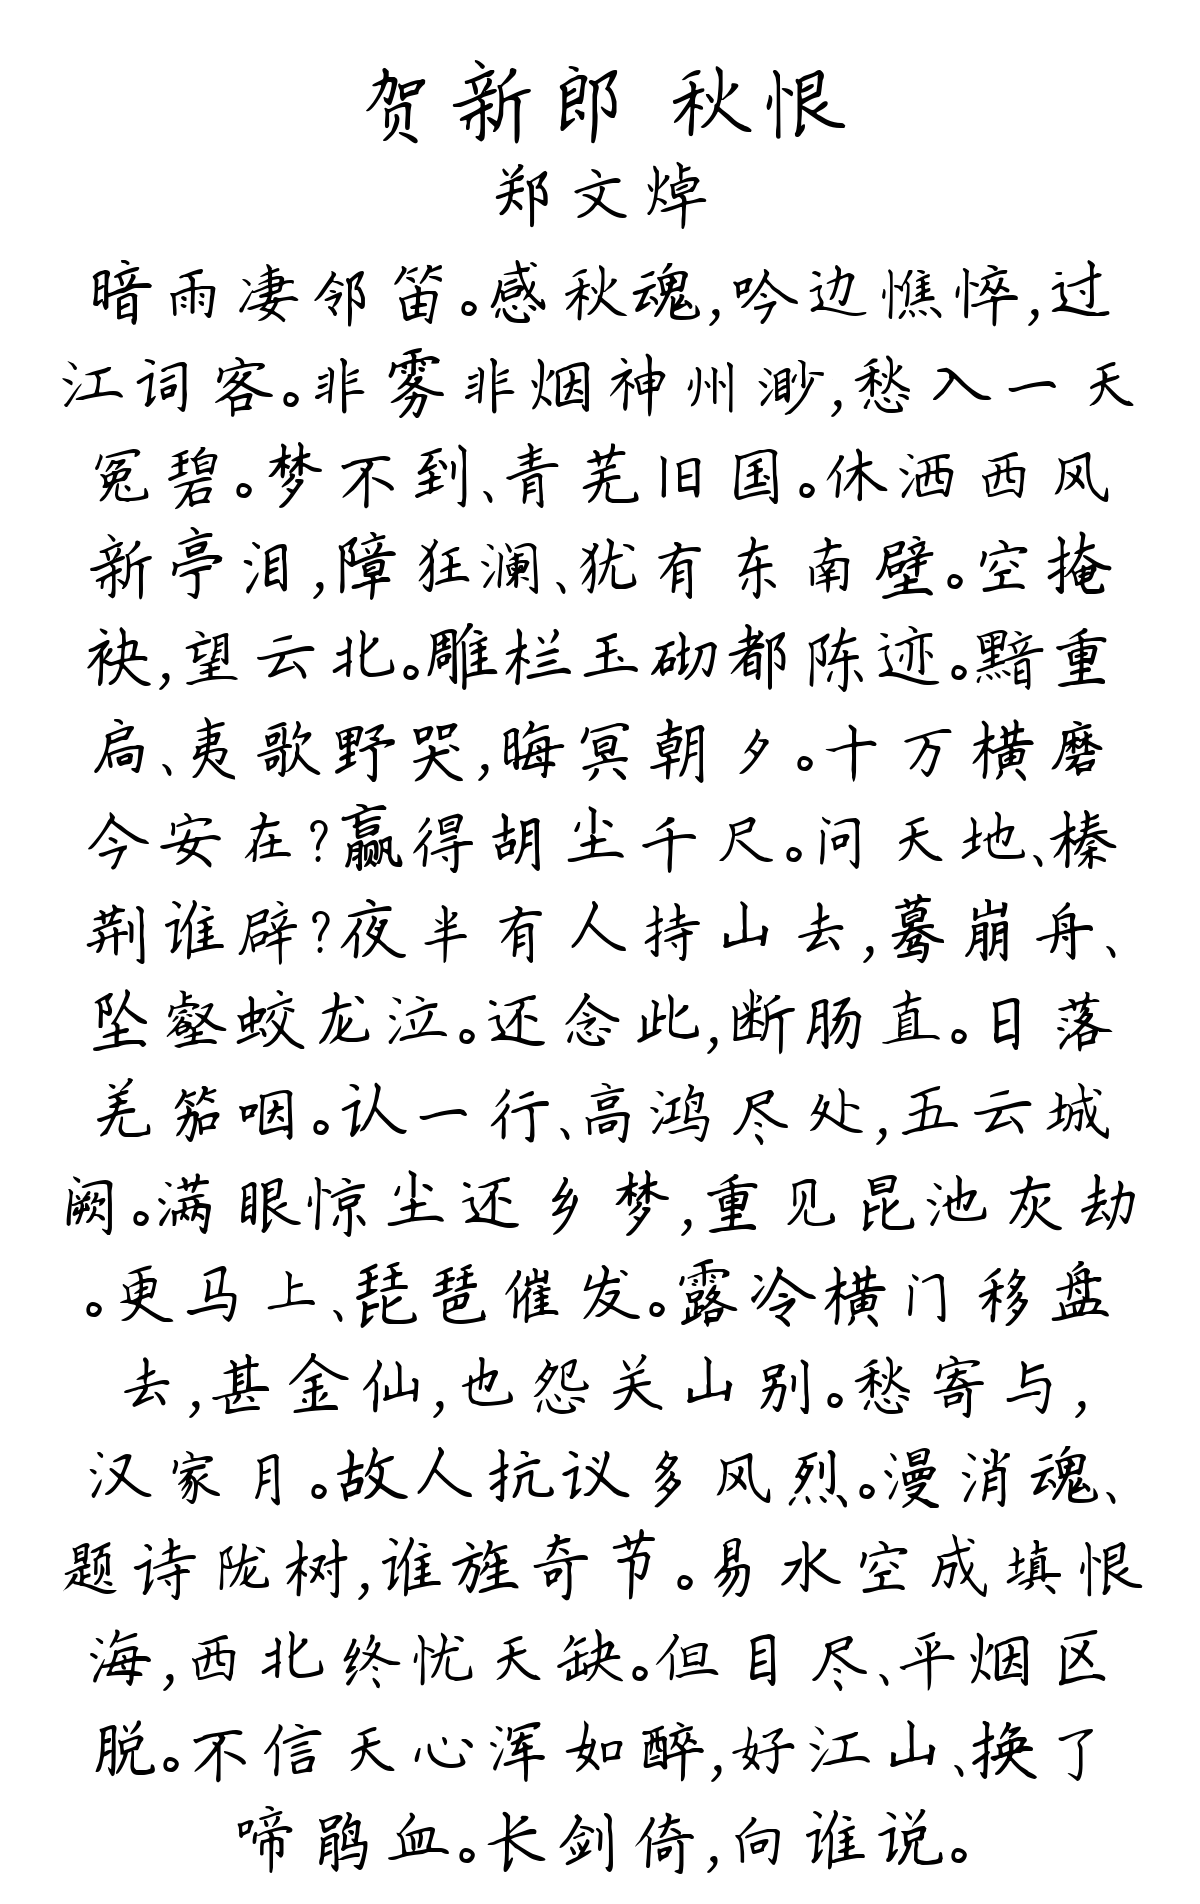 贺新郎 秋恨
郑文焯
暗雨凄邻笛。感秋魂,吟边憔悴,过
江词客。非雾非烟神州渺,愁入一天
冤碧。梦不到、青芜旧国。休洒西风
新亭泪,障狂澜、犹有东南壁。空掩
袂,望云北。雕栏玉砌都陈迹。黯重
扃、夷歌野哭,晦冥朝夕。十万横磨
今安在?赢得胡尘千尺。问天地、榛
荆谁辟?夜半有人持山去,蓦崩舟、
坠壑蛟龙泣。还念此,断肠直。日落
羌笳咽。认一行、高鸿尽处,五云城
阙。满眼惊尘还乡梦,重见昆池灰劫
。更马上、琵琶催发。露冷横门移盘
去,甚金仙,也怨关山别。愁寄与,
汉家月。故人抗议多风烈。漫消魂、
题诗陇树,谁旌奇节。易水空成填恨
海,西北终忧天缺。但目尽、平烟区
脱。不信天心浑如醉,好江山、换了
啼鹃血。长剑倚,向谁说。